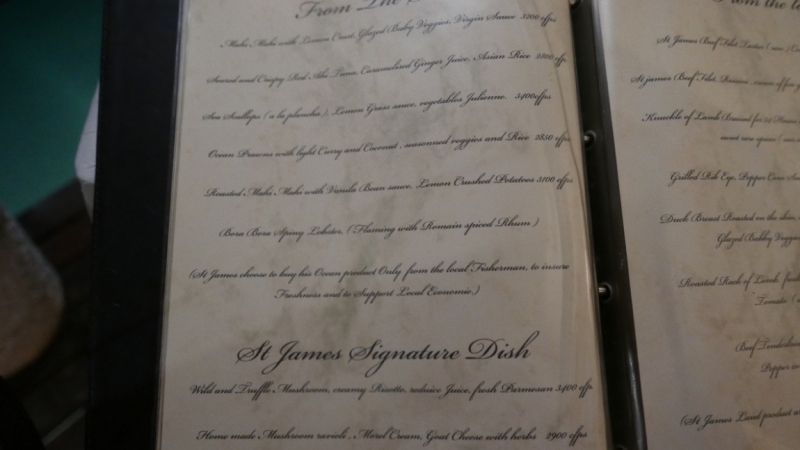 From The
Mahi Mahi with Lemon Crust, Glazed Baby Veggies, Virgin Sauce 3200 cfps
Seared and Crispy Red Ahi Tuna, Caramelized Ginger Juice, Asian Rice 2800 cfp
Sea Scallops (a la plancha), Lemon Grass sauce, vegetables Julienne. 3400cfps
Ocean Prawns with light Curry and Coconut, seasonned veggies and Rice 2850 cfps
Roasted Mahi Mahi with Vanila Bean sauce, Lemon Crushed Potatoes 3100 cfps
Bora Bora Spiny Lobster, (Flaming with Romain spiced Rhum)
(St James choose to buy his Ocean product Only from the local Fisherman, to insure
Freshness and to Support Local Economie.)
St James Signature Dish
Wild and Truffle Mushroom, creamy Risotto, reduice Juice, fresh Parmesan 3400 cfp
Home made Mushroom ravioli, Morel Cream, Goat Cheese with herbs 2900 cfps
From the
St James Beef Filet
St James Beef Filet
Knuckle of Lamb Braised for
Grilled Rib Eye, Pepper Corn
Duck Breast Roasted on the skin,
Glazed Babby Veggi
Roasted Rack of Lamb,
Tomato
Beef Tenderloin
Pepper
(St James Land product